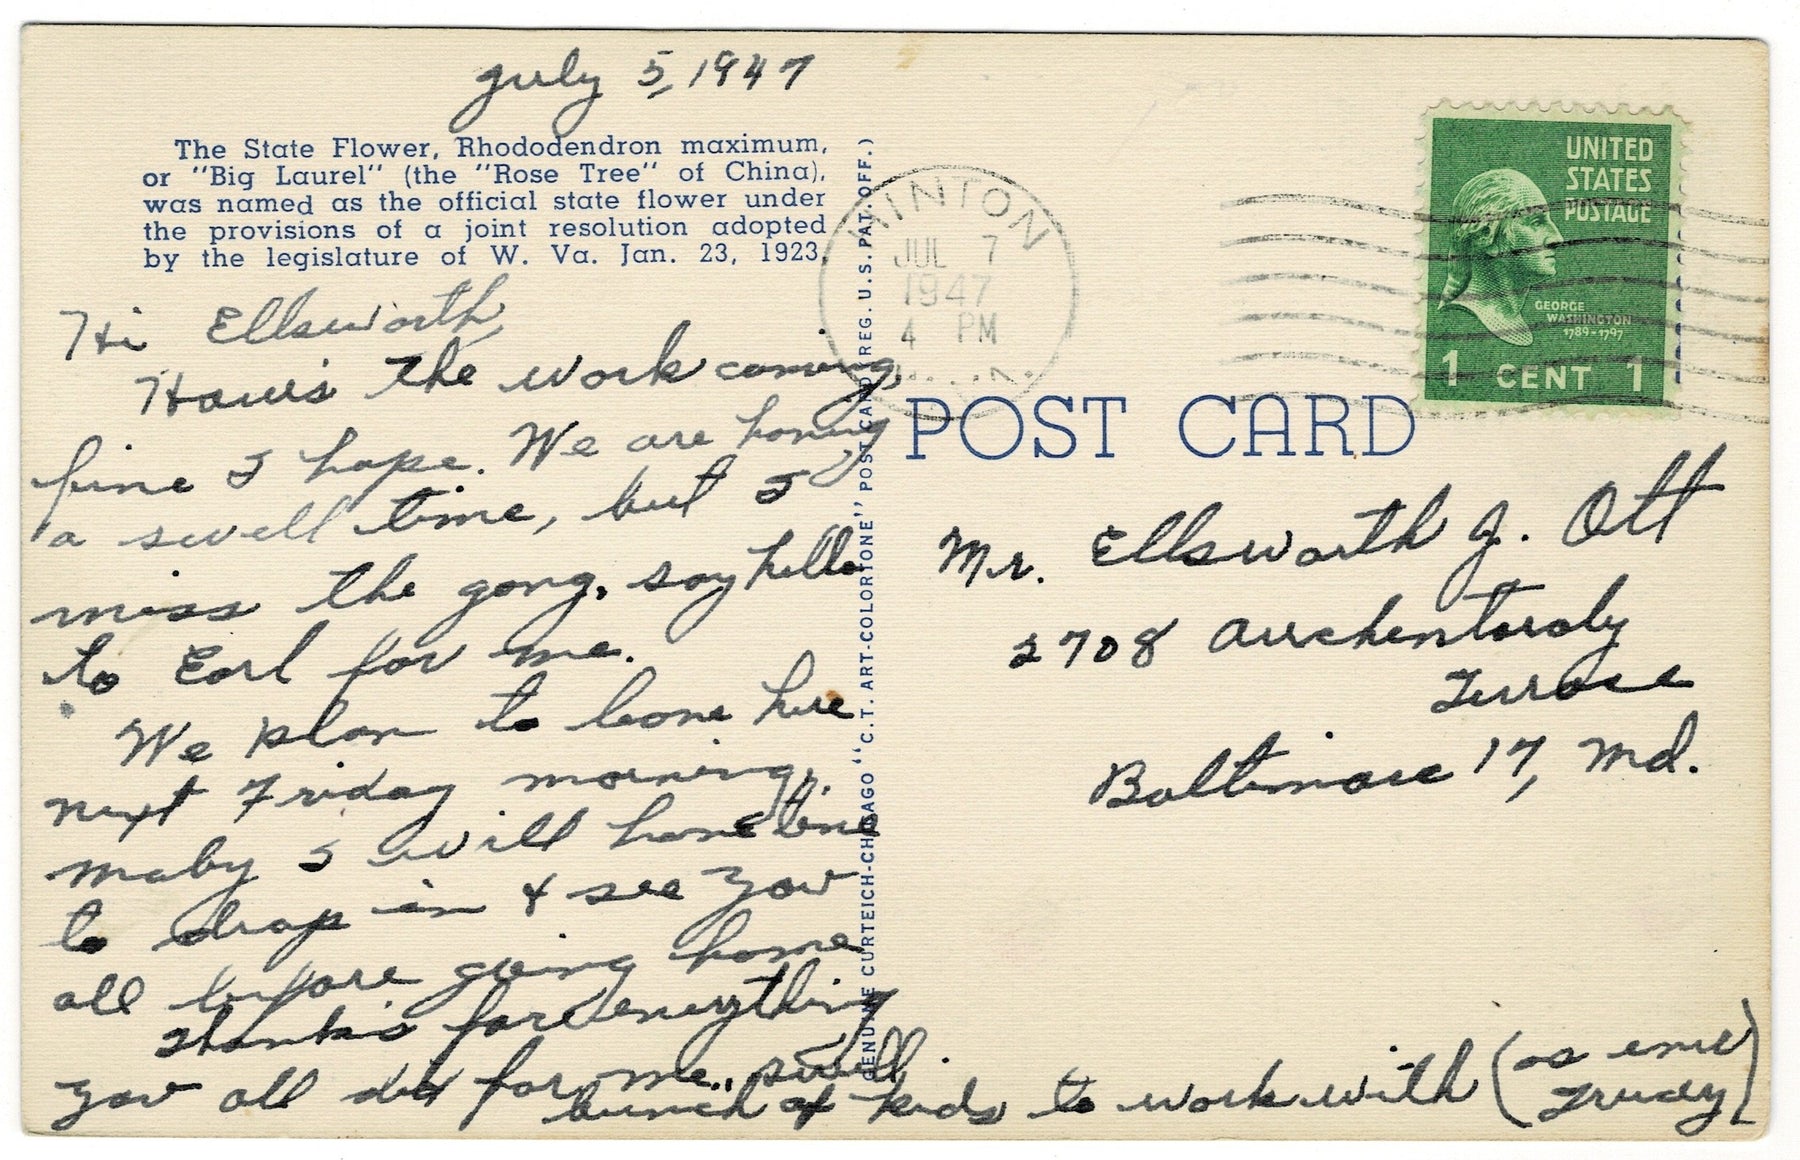 July 5, 1947
The State Flower, Rhododendron maximum,
or "Big Laurel" (the "Rose Tree" of China),
was named as the official state flower under
the provisions of a joint resolution adopted
by the legislature of W. Va. Jan. 23, 1923.
Hi Ellsworth,
How's the work coming,
fine I hope. We are having
a swell time, but I
miss the gang. say hello
to Earl for me.
We plan to leave here
next Friday morning,
maby I will have time
to drop in & see you
all before going home
Thanks for everything
you all did for me., swell
bunch of kids to work with (as ever
Trudy)
GENUINE CURTEICH-CHICAGO "C.T. ART-COLORTONE" POST CARD (REG. U.S. PAT. OFF.)
HINTON
JUL 7
1947
4 PM
UNITED
STATES
POSTAGE
GEORGE
WASHINGTON
1789-1797
1 CENT 1
POST CARD
Mr. Ellsworth J. Ott
2708 Auchentoroly
Terrace
Baltimore 17, Md.